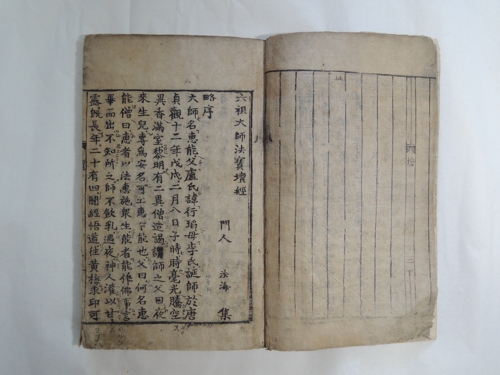 六祖大師法寶壇經
門人 法海 集
略序
大師名惠能父盧氏諱行瑫母李氏誕師於唐
貞觀十二年戊戌二月八日子時時毫光騰空
異香滿室黎明有二異僧造謁謂師之父曰夜
來生兒專爲安名可上惠下能也父曰何名惠
能僧曰惠者以法惠施衆生能者能作佛事言
畢而出不知所之師不飮乳遇夜神人灌以甘
露旣長年二十有四聞經悟道往黃梅求印可